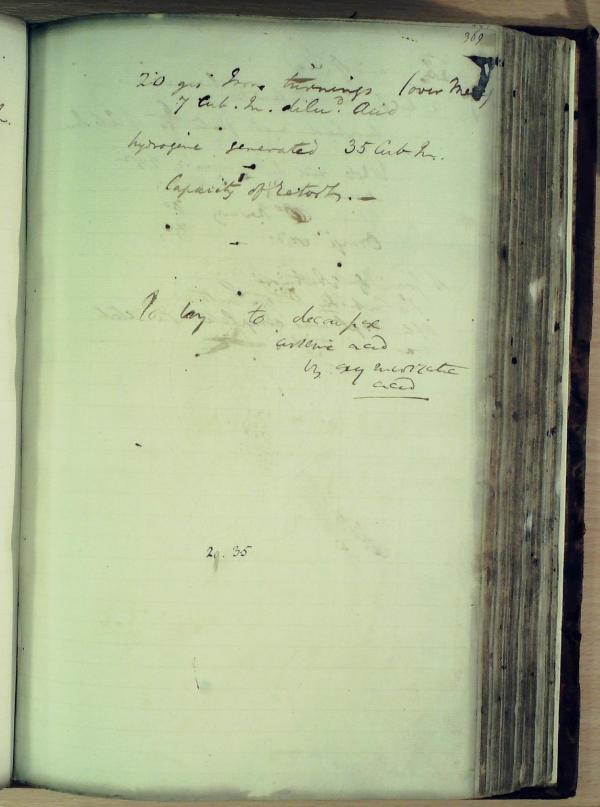 369
20 grs Iron turnings (over Merc)
7 Cub. In. dilud. Acid
hydrogene generated 35 Cub In.
Capacity of Retorts. —
To try to decompose
arsenic acid
by oxymuriatic
acid
29. 35